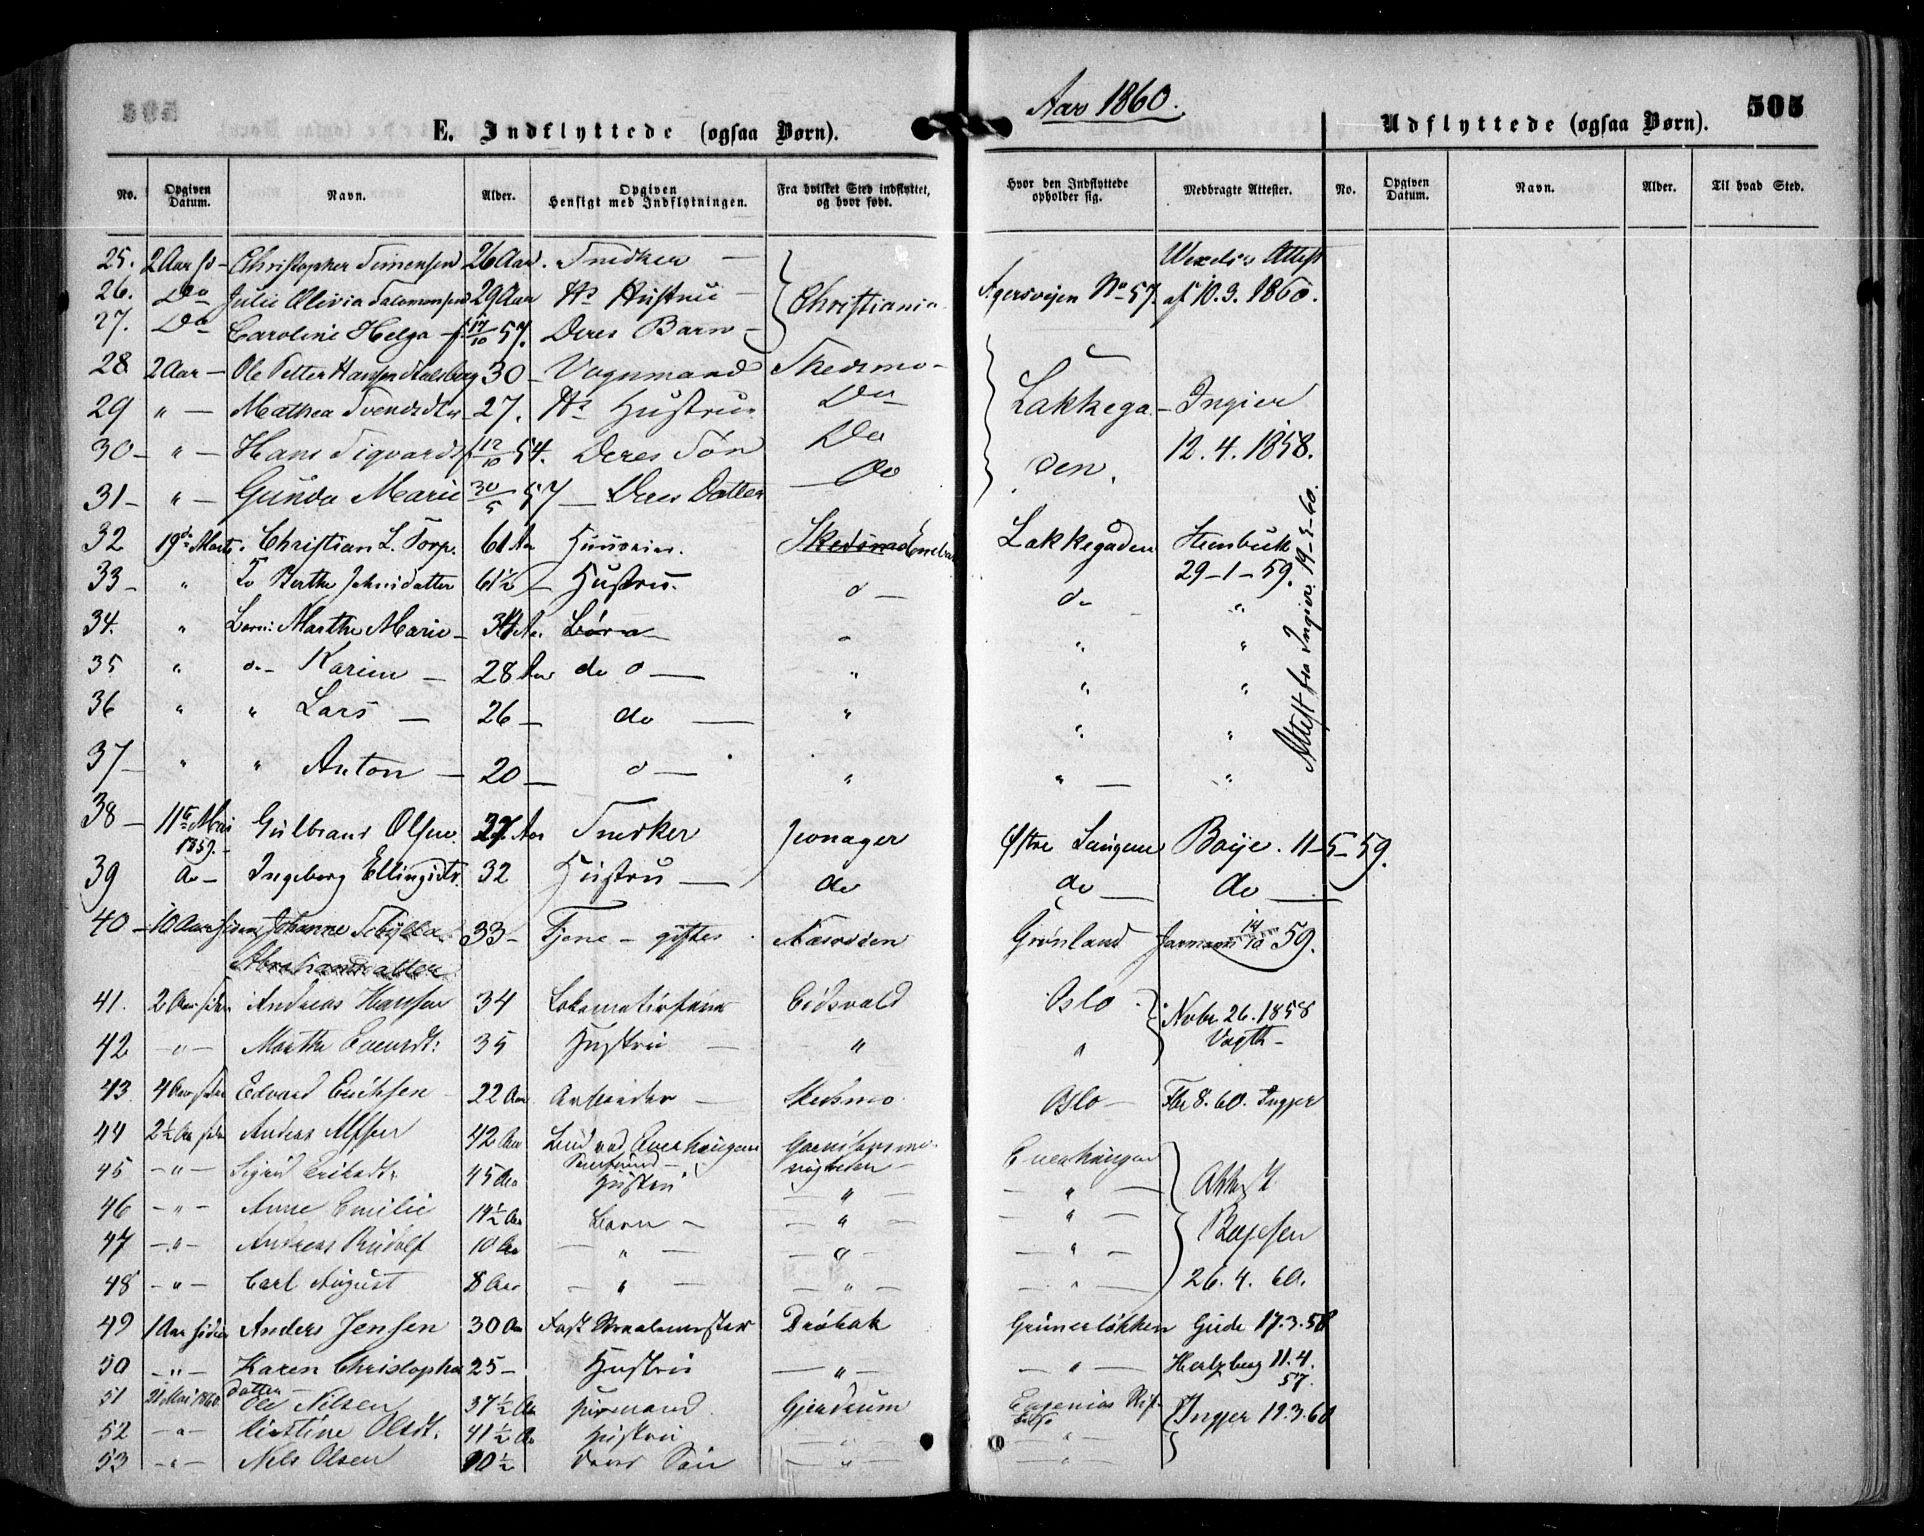 Aar 1860.
505
E. Indflyttede (ogsaa Børn).
Udflyttede (ogsaa Børn).
No. Opgiven Datum. Navn. Alder. Opgiven Hensigt med Indflytningen. Fra hvilket Sted indflyttet, og hvor født. Hvor den Indflyttede opholder sig. Medbragte Attester. No. Opgiven Datum. Navn. Alder. Til hvad Sted.
25. 2 Aar sd - Christopher Simensen 26 Aar. Snedker - Christiania Agersveien No 57. Wexels's Attest af 10.3.1860.
26. Do Julie Olivia Salomonsen 29 Aar Hs Hustrue -
27. Do Caroline Helga - f 17/10 57. Deres Barn -
28 2 Aar - Ole Petter Hansen 30 - Vognmand Skedsmo - Lakkegaden, Ingier 12.4.1858.
29 " - Mathea Svendsdtr 27. Hs Hustrue Do
30 - " - Hans Sigvard f 12/10 54. Deres Søn Do
31 - " - Gunda Marie 30/5 57 - Deres Datter Do
32 19de Marts. Christian L. Torp. 61 Aar Huuseier. Skedsmo Lakkegaden 29-1-59.
Attest fra Ingier 19-3-60.
33 - " Berthe Johnsdatter 61½ Hustru. do - do "
34. " Børn: Marthe Marie - 34 Aar Børn " " "
35 " do - Karen - 28 Aar do - " " "
36 " " Lars - 26 - do - " " "
37 - " " Anton - 20 - do - " " - "
38 - 11te Mai 1859. - Gulbrand Olsen 37 Aar Snedker Jevnager Østre Boije. 11-5-59.
39 do - Ingeborg Ellingsdtr. 32 Hustru - do do - do -
40 - 10 Aar siden Johanne Abrahamsdatter 33 - Tjene - giftes Næsodden Grønland 14/10 59.
41. 2 Aar siden Andreas Hansen 34 Eidsvold Oslo - Nvbr 26. 1858 Vogth -
42 - " - Marthe Evensdt: 35 Hustru - " "
43. 4 Aar siden Edvard Erichsen - 22 Aar Arbeider - Skedsmo Oslo - Fbr 8. 60. Ingjer
44 2½ Aar siden Andreas 42 Aar Enerhaugen
45 - " - Sigrid Eriksdt: 45 Aar Hustru - " - - " - Attest
46 - " - Anne Emilie 14½ Aar Børn - - " - - " -
47 - " - Andreas Rudolf 10 Aar - " - - " - - " -
48 - " - Carl August 8 Aar - " - - " - - " - 26. 4. 60.
49 1 Aar siden Anders Jensen 30 Aar Drøbak Grünerløkken Gude 17.3.58
50 - " - Karen Christophersdatter 25 - Hustru - " - - " - Hertzberg 11.4.57.
51 21 Mai 1860. Ole Nilsen 37½ Aar Huusmand Gjerdrum Eugenias Stiftelse Ingjer 19.3.60
52 - " - Kirstine Olsdt. 41½ Aar Hustru - " - - " -
53 - " - Nils Olsen 10½ deres Søn - " - - " -